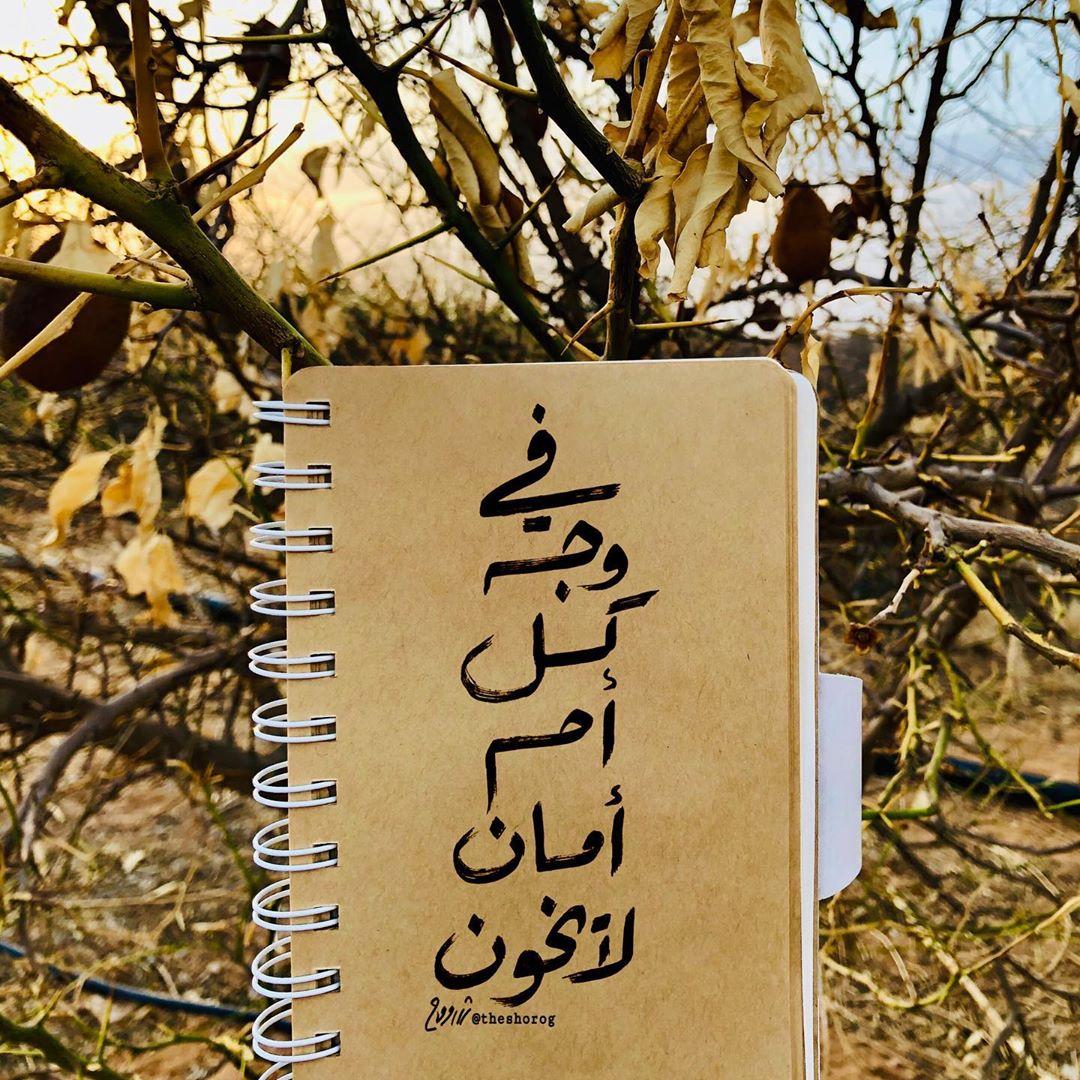 في
وجه
كل
أم
أمان
لا تخون
شروق @theshorog